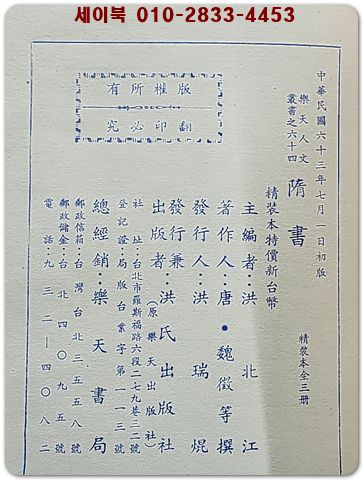 세이북 010-2833-4453
有所權版
究必印翻
中華民國六十三年七月一日初版
樂天人文
叢書之六十四
隋書
精裝本全三册
精裝本特價新台幣
主編者：洪北江
著作人：唐•魏徵等撰
發行人：洪瑞焜
發行兼
出版者：洪氏出版社
（原樂天出版社）
社址：台北市羅斯福路六段二七九巷三二號
登記證：局版台業字第一一三號
總經銷：樂天書局
郵政信箱：台灣台北三五五號
郵政儲金：台北四〇九五八號
電話：九三二—四〇八二